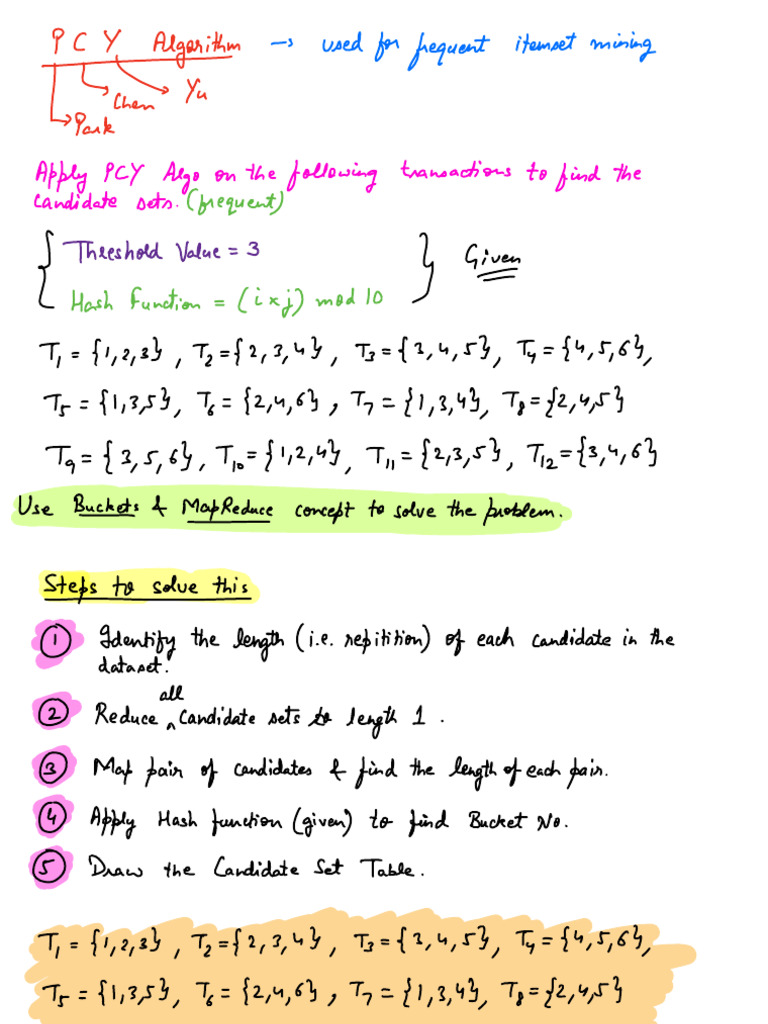 PCY Algorithm → used for frequent itemset mining
Chen Yu
Park
Apply PCY Algo on the following transactions to find the
candidate sets. (frequent)
Threshold Value = 3
Given
Hash Function = (i × j) mod 10
T₁ = {1,2,3} , T₂ = {2,3,4} , T₃ = {3,4,5}, T₄ = {4,5,6},
T₅ = {1,3,5}, T₆ = {2,4,6} , T₇ = {1,3,4}, T₈ = {2,4,5}
T₉ = {3,5,6}, T₁₀ = {1,2,4}, T₁₁ = {2,3,5}, T₁₂ = {3,4,6}
Use Buckets & MapReduce concept to solve the problem.
Steps to solve this
1 Identify the length (i.e. repitition) of each candidate in the
dataset.
2 Reduce all candidate sets to length 1.
3 Map pair of candidates & find the length of each pair.
4 Apply Hash function (given) to find Bucket No.
5 Draw the Candidate Set Table.
T₁ = {1,2,3} , T₂ = {2,3,4} , T₃ = {3,4,5}, T₄ = {4,5,6},
T₅ = {1,3,5}, T₆ = {2,4,6} , T₇ = {1,3,4}, T₈ = {2,4,5}